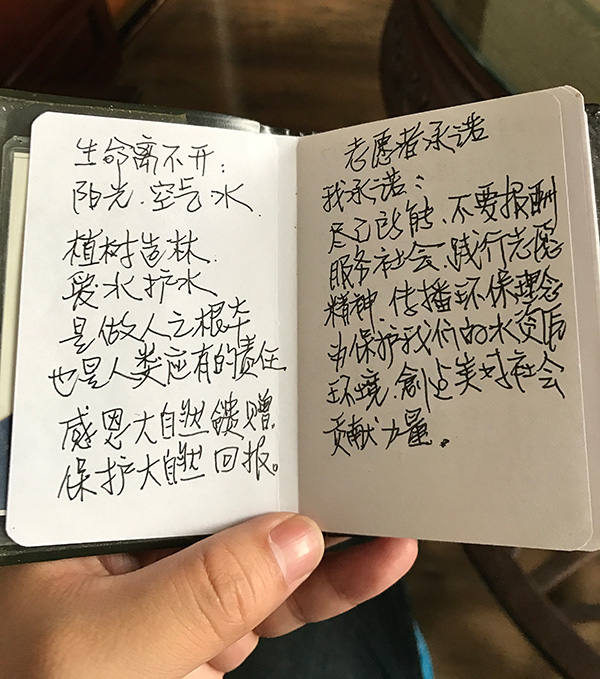 生命离不开：
阳光．空气水．
植树造林．
爱水护水
是做人之根本
也是人类应有的责任
感恩大自然馈赠．
保护大自然 回报。
志愿者承诺
我承诺：
尽己所能．不要报酬
服务社会．践行志愿
精神．传播环保理念
为保护我们的水资源
环境．創造美好社会
贡献力量。